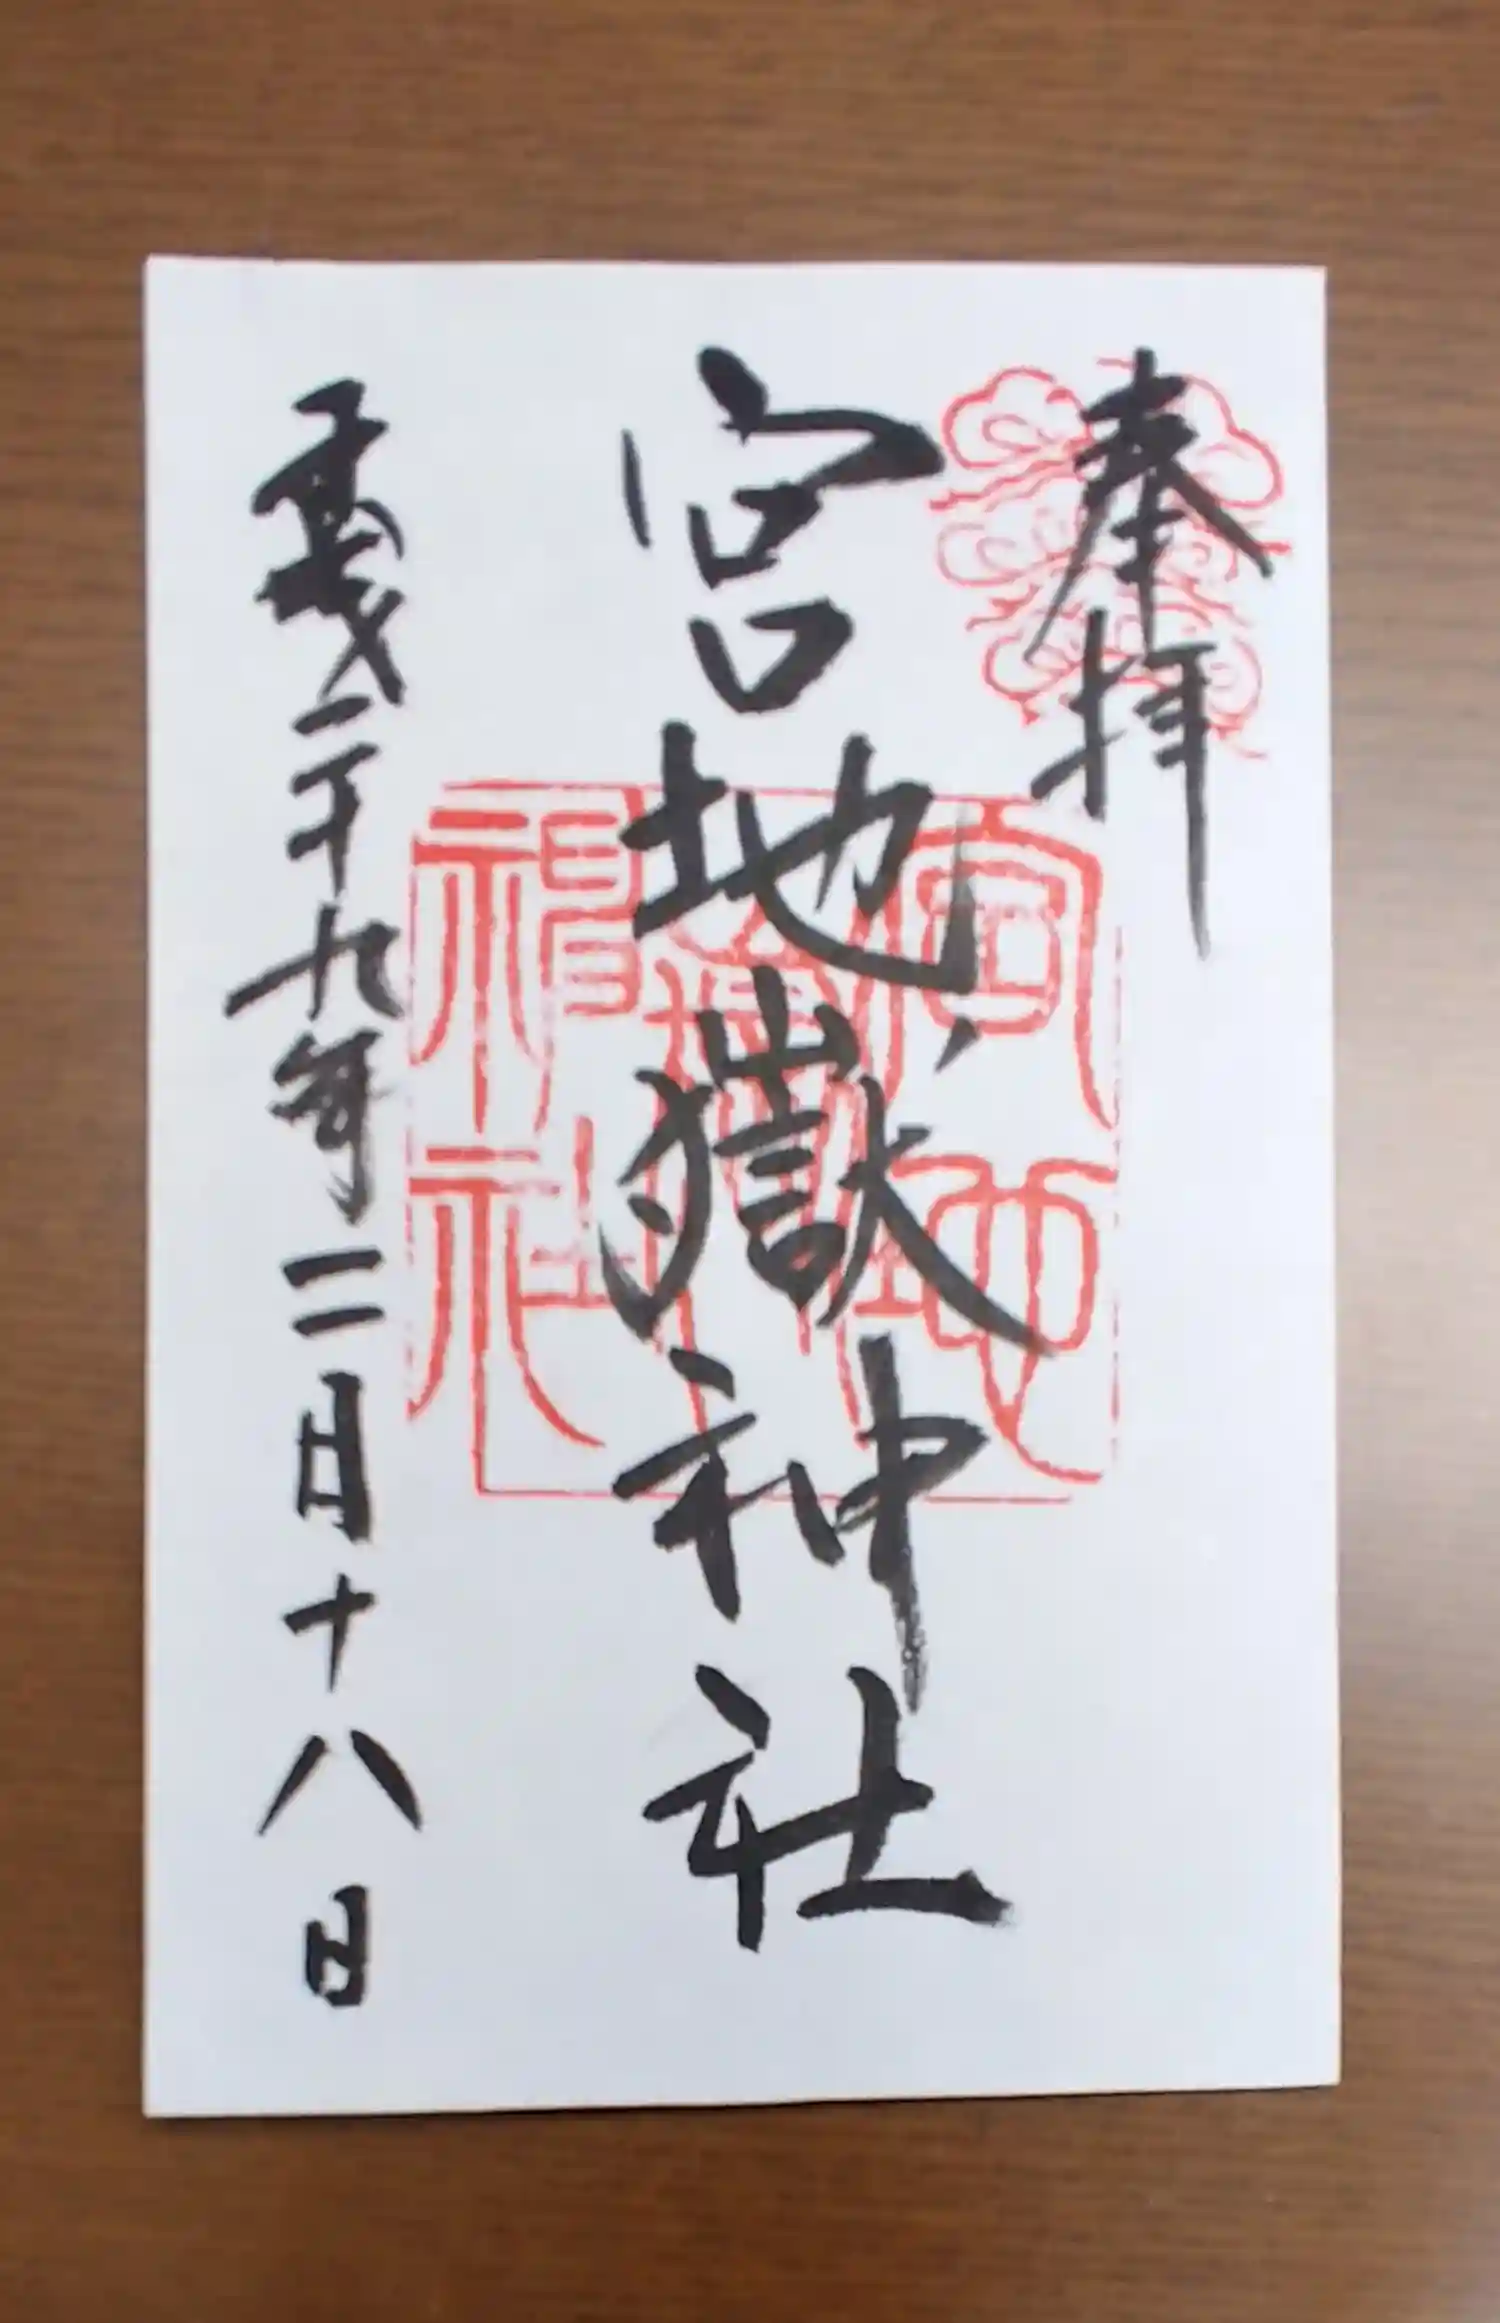 奉拝
宮地嶽神社
宮地嶽神社
平成二十九年二月十八日